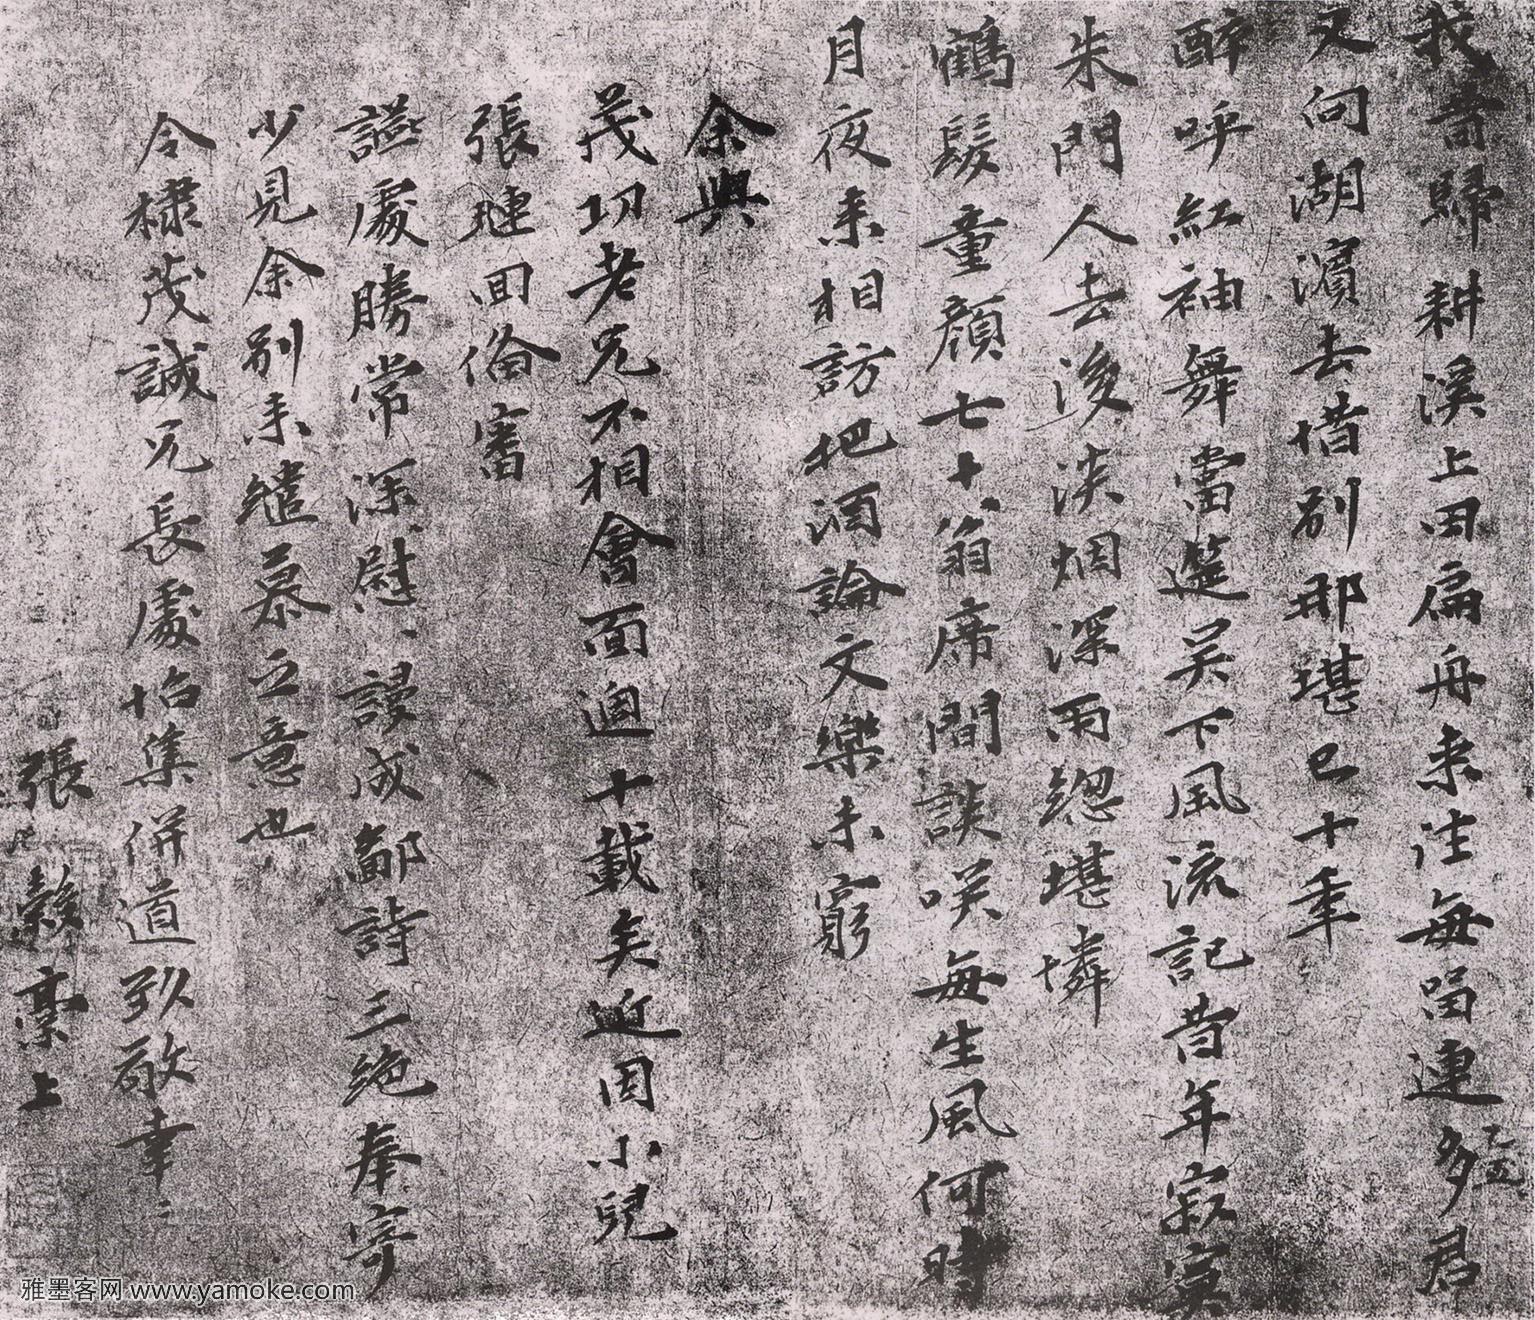 我昔歸耕溪上田扁舟来往每留連多君
又向湖濵去惜別那堪已十年
醉呼紅袖舞當筵吴下風流記昔年寂寞
朱門人去後淡烟深雨緫堪憐
鶴髮童顔七十翁席間談咲每生風何時
月夜来相訪把酒論文樂未窮
余與
茂功老兄不相會面迨十載矣近因小兒
張璉回倫審
謡處勝常深慰謾成鄙詩三絶奉寄
少見余別未繾慕之意也
令棣茂誠兄長處怡集併道致敬幸〻
張 稾上
雅墨客网 www.yamoke.com